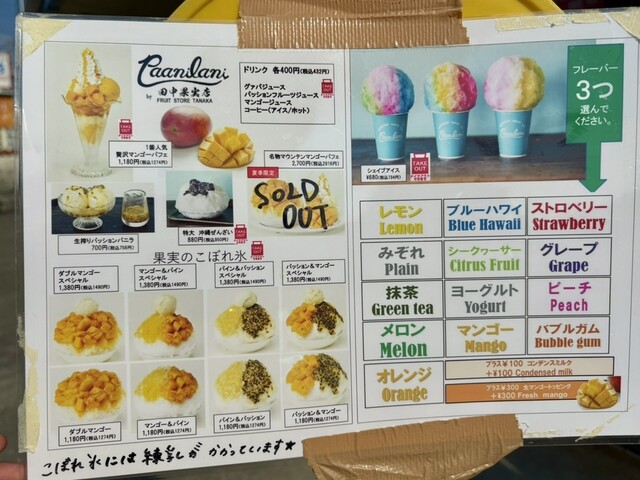 Paanilani
by 田中果実店
FRUIT STORE TANAKA
ドリンク 各400円(税込432円)
グァバジュース
パッションフルーツジュース
マンゴージュース
コーヒー(アイス/ホット)
TAKE OUT
1番人気
贅沢マンゴーパフェ
1,180円(税込1274円)
名物マウンテンマンゴーパフェ
2,700円(税込2916円)
夏季限定
SOLD OUT
生搾りパッションバニラ
700円(税込756円)
特大 沖縄ぜんざい
880円(税込950円)
果実のこぼれ氷
ダブルマンゴー
スペシャル
1,380円(税込1490円)
マンゴー&パイン
スペシャル
1,380円(税込1490円)
パイン&パッション
スペシャル
1,380円(税込1490円)
パッション&マンゴー
スペシャル
1,380円(税込1490円)
ダブルマンゴー
1,180円(税込1274円)
マンゴー&パイン
1,180円(税込1274円)
パイン&パッション
1,180円(税込1274円)
パッション&マンゴー
1,180円(税込1274円)
こぼれ氷には練乳がかかっています☆
シェイブアイス
¥680(税込734円)
TAKE OUT
フレーバー
3つ
選んで
ください。
レモン
Lemon
ブルーハワイ
Blue Hawaii
ストロベリー
Strawberry
みぞれ
Plain
シークヮーサー
Citrus Fruit
グレープ
Grape
抹茶
Green tea
ヨーグルト
Yogurt
ピーチ
Peach
メロン
Melon
マンゴー
Mango
バブルガム
Bubble gum
オレンジ
Orange
プラス¥100 コンデンスミルク
+¥100 Condensed milk
プラス¥300 生マンゴートッピング
+¥300 Fresh mango